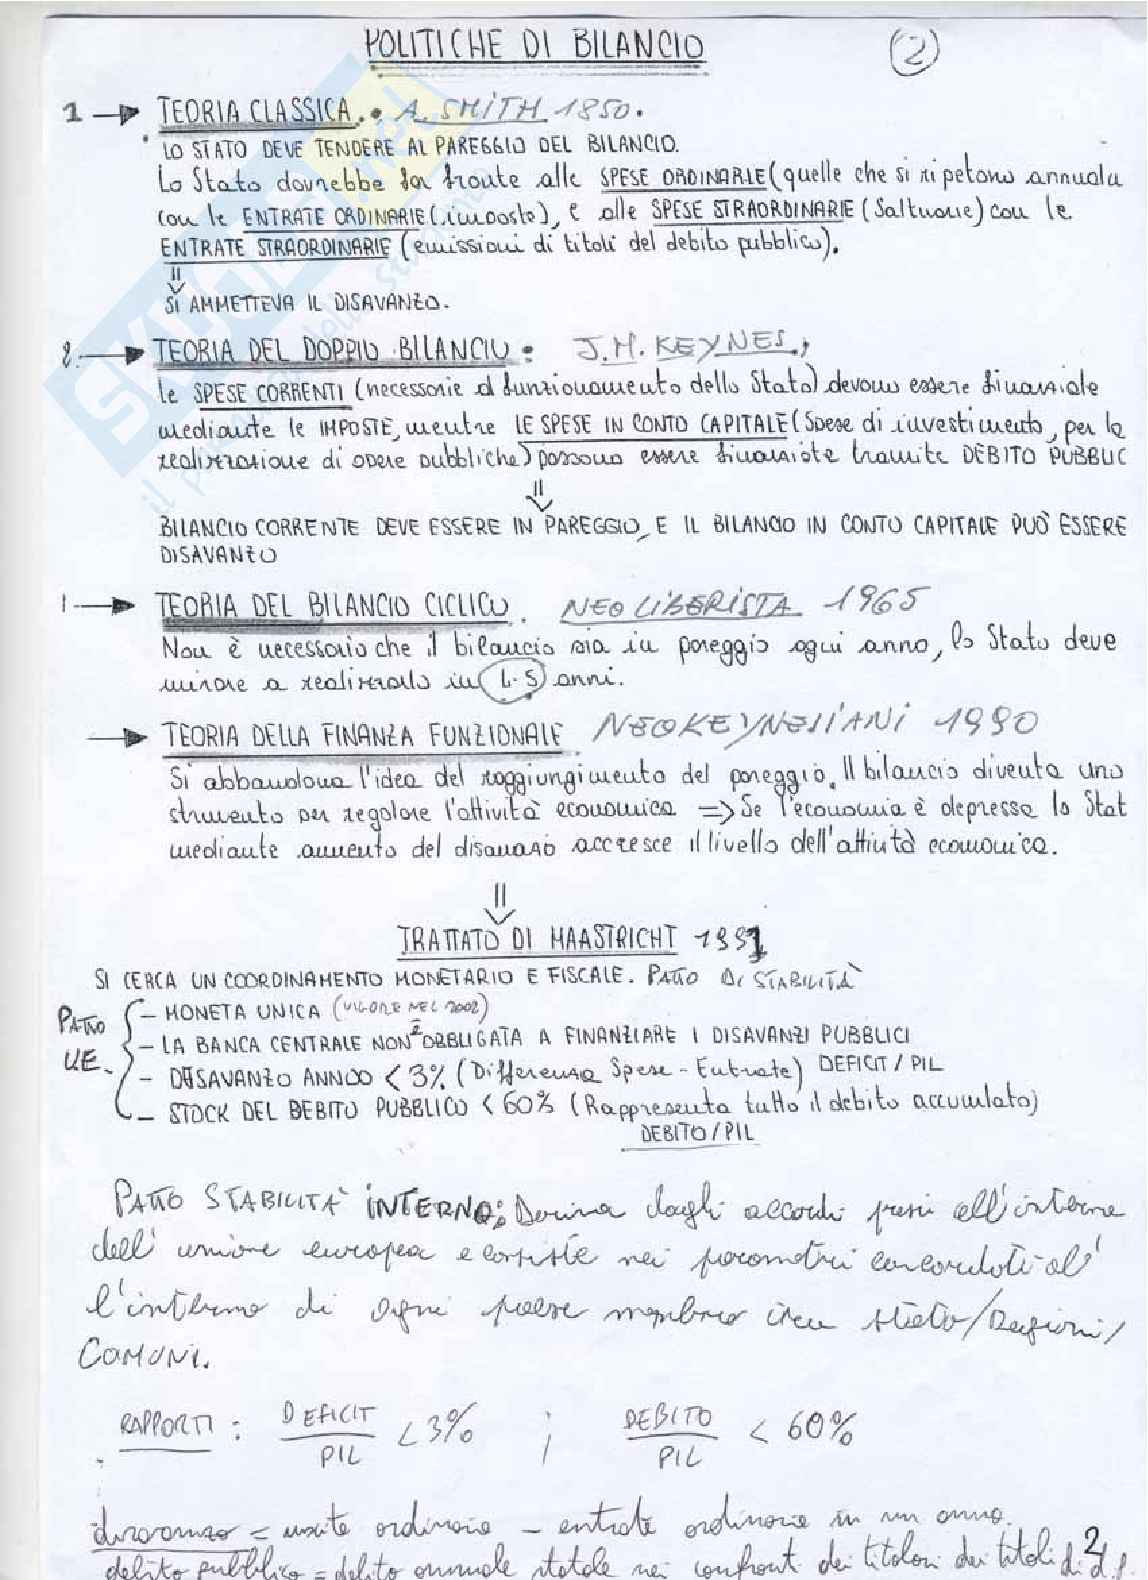 POLITICHE DI BILANCIO
2
1 → TEORIA CLASSICA : A. SMITH 1850.
LO STATO DEVE TENDERE AL PAREGGIO DEL BILANCIO.
Lo Stato dovrebbe far fronte alle SPESE ORDINARIE (quelle che si ripetono annualm
con le ENTRATE ORDINARIE (imposte), e alle SPESE STRAORDINARIE (Saltuarie) con le
ENTRATE STRAORDINARIE (emissioni di titoli del debito pubblico).
SI AMMETTEVA IL DISAVANZO.
2. → TEORIA DEL DOPPIO BILANCIO : J.M. KEYNES,
le SPESE CORRENTI (necessarie al funzionamento dello Stato) devono essere finanziate
mediante le IMPOSTE, mentre LE SPESE IN CONTO CAPITALE (Spese di investimento, per la
realizzazione di opere pubbliche) possono essere finanziate tramite DEBITO PUBBLIC
BILANCIO CORRENTE DEVE ESSERE IN PAREGGIO, E IL BILANCIO IN CONTO CAPITALE PUÒ ESSERE
DISAVANZO
1 → TEORIA DEL BILANCIO CICLICO. NEOLIBERISTA 1965
Non è necessario che il bilancio sia in pareggio ogni anno, lo Stato deve
mirare a realizzarlo in 4-5 anni.
→ TEORIA DELLA FINANZA FUNZIONALE NEOKEYNESIANI 1990
Si abbandona l'idea del raggiungimento del pareggio. Il bilancio diventa uno
strumento per regolare l'attività economica => Se l'economia è depressa lo Stat
mediante aumento del disavanzo accresce il livello dell'attività economica.
TRATTATO DI MAASTRICHT 1991
SI CERCA UN COORDINAMENTO MONETARIO E FISCALE. PATTO DI STABILITÀ
PATTO UE.
- MONETA UNICA (VIGORE NEL 2002)
- LA BANCA CENTRALE NON È OBBLIGATA A FINANZIARE I DISAVANZI PUBBLICI
- DISAVANZO ANNUO < 3% (Differenza Spese - Entrate) DEFICIT / PIL
- STOCK DEL DEBITO PUBBLICO < 60% (Rappresenta tutto il debito accumulato)
DEBITO / PIL
PATTO STABILITÀ INTERNO: Deriva dagli accordi presi all'interno
dell' unione europea e consiste nei parametri concordati all'
l'interno di ogni paese membro tra stato/Regioni/
COMUNI.
RAPPORTI : DEFICIT / PIL < 3% ; DEBITO / PIL < 60%
disavanzo = uscite ordinarie - entrate ordinarie in un anno.
debito pubblico = debito annuale totale nei confronti dei titolari dei titoli di d.p.
2